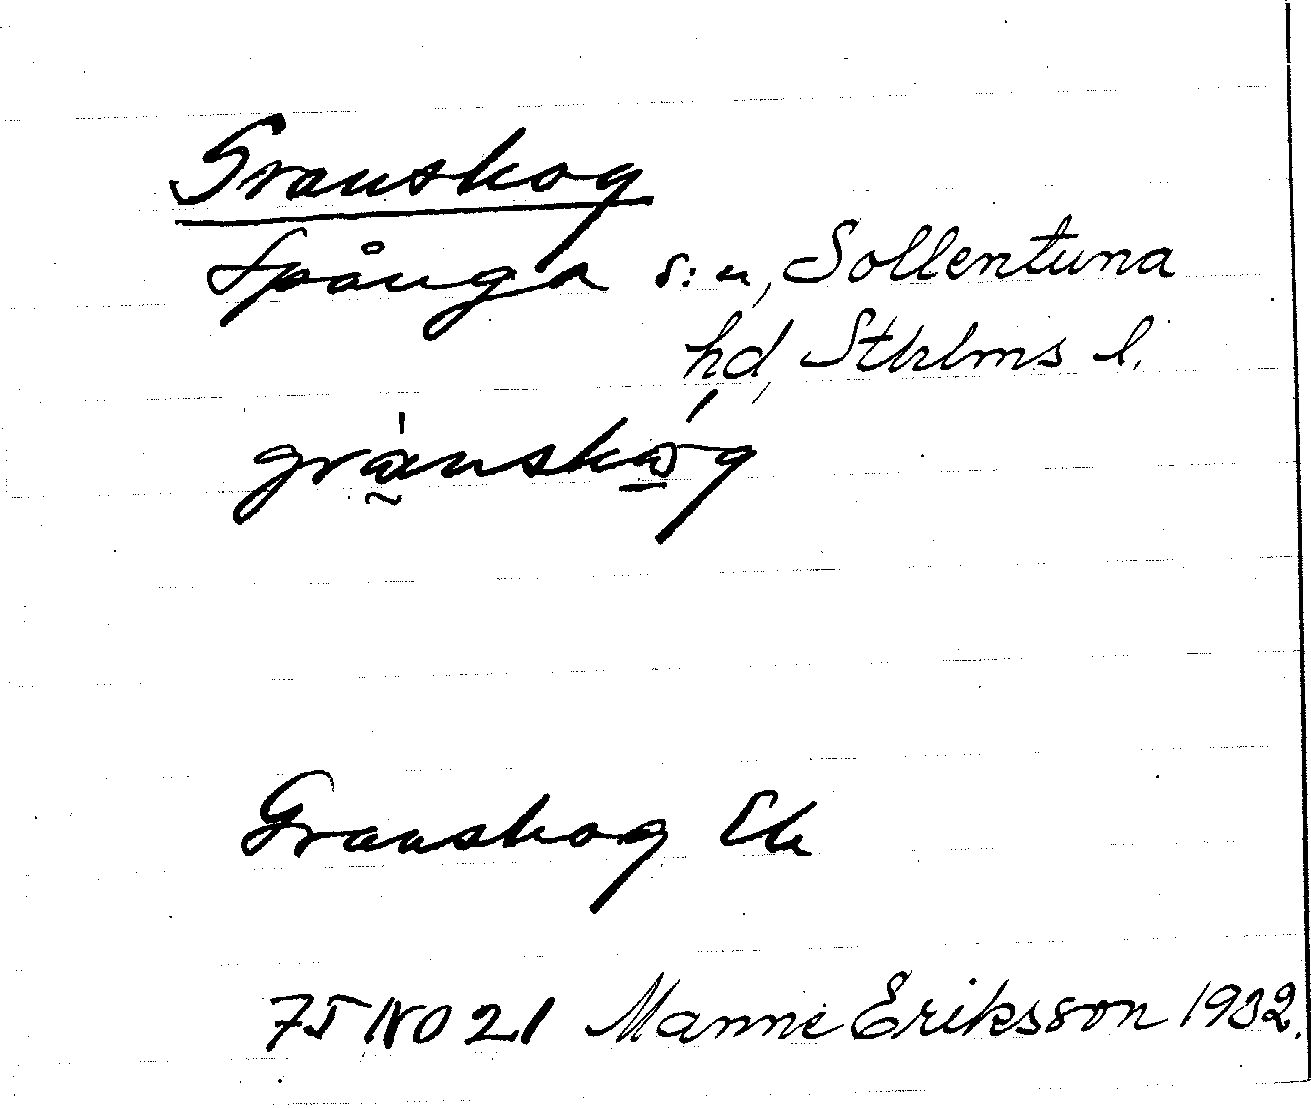 Granskog
Spånga s:n, Sollentuna
hd, Sthlms l.
grànskóg
Granskog Ek
75 NO 21 Manne Eriksson 1932.